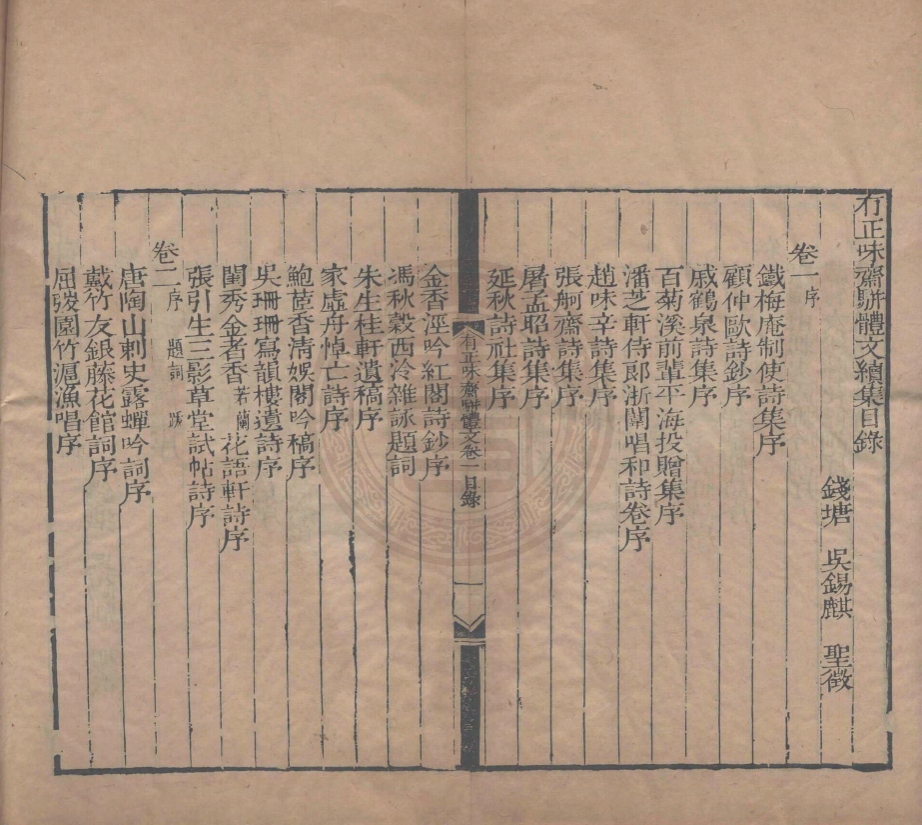 有正味齋駢體文續集目錄
錢塘 吳錫麒 聖徵
卷一序
鐵梅庵制使詩集序
顧仲歐詩鈔序
戚鶴泉詩集序
百菊溪前輩平海投贈集序
潘芝軒侍郎浙闈唱和詩卷序
趙味辛詩集序
張舸齋詩集序
屠孟昭詩集序
延秋詩社集序
有正味齋駢體文卷一目錄
金香涇吟紅閣詩鈔序
馮秋穀西泠雜詠題詞
朱生桂軒遺稿序
家虛舟悼亡詩序
鮑茝香清娛閣吟稿序
吳珊珊寫韻樓遺詩序
閨秀金者香若蘭花語軒詩序
張引生三影草堂試帖詩序
卷二序 題詞 跋
唐陶山刺史露蟬吟詞序
戴竹友銀藤花館詞序
屈弢園竹滬漁唱序